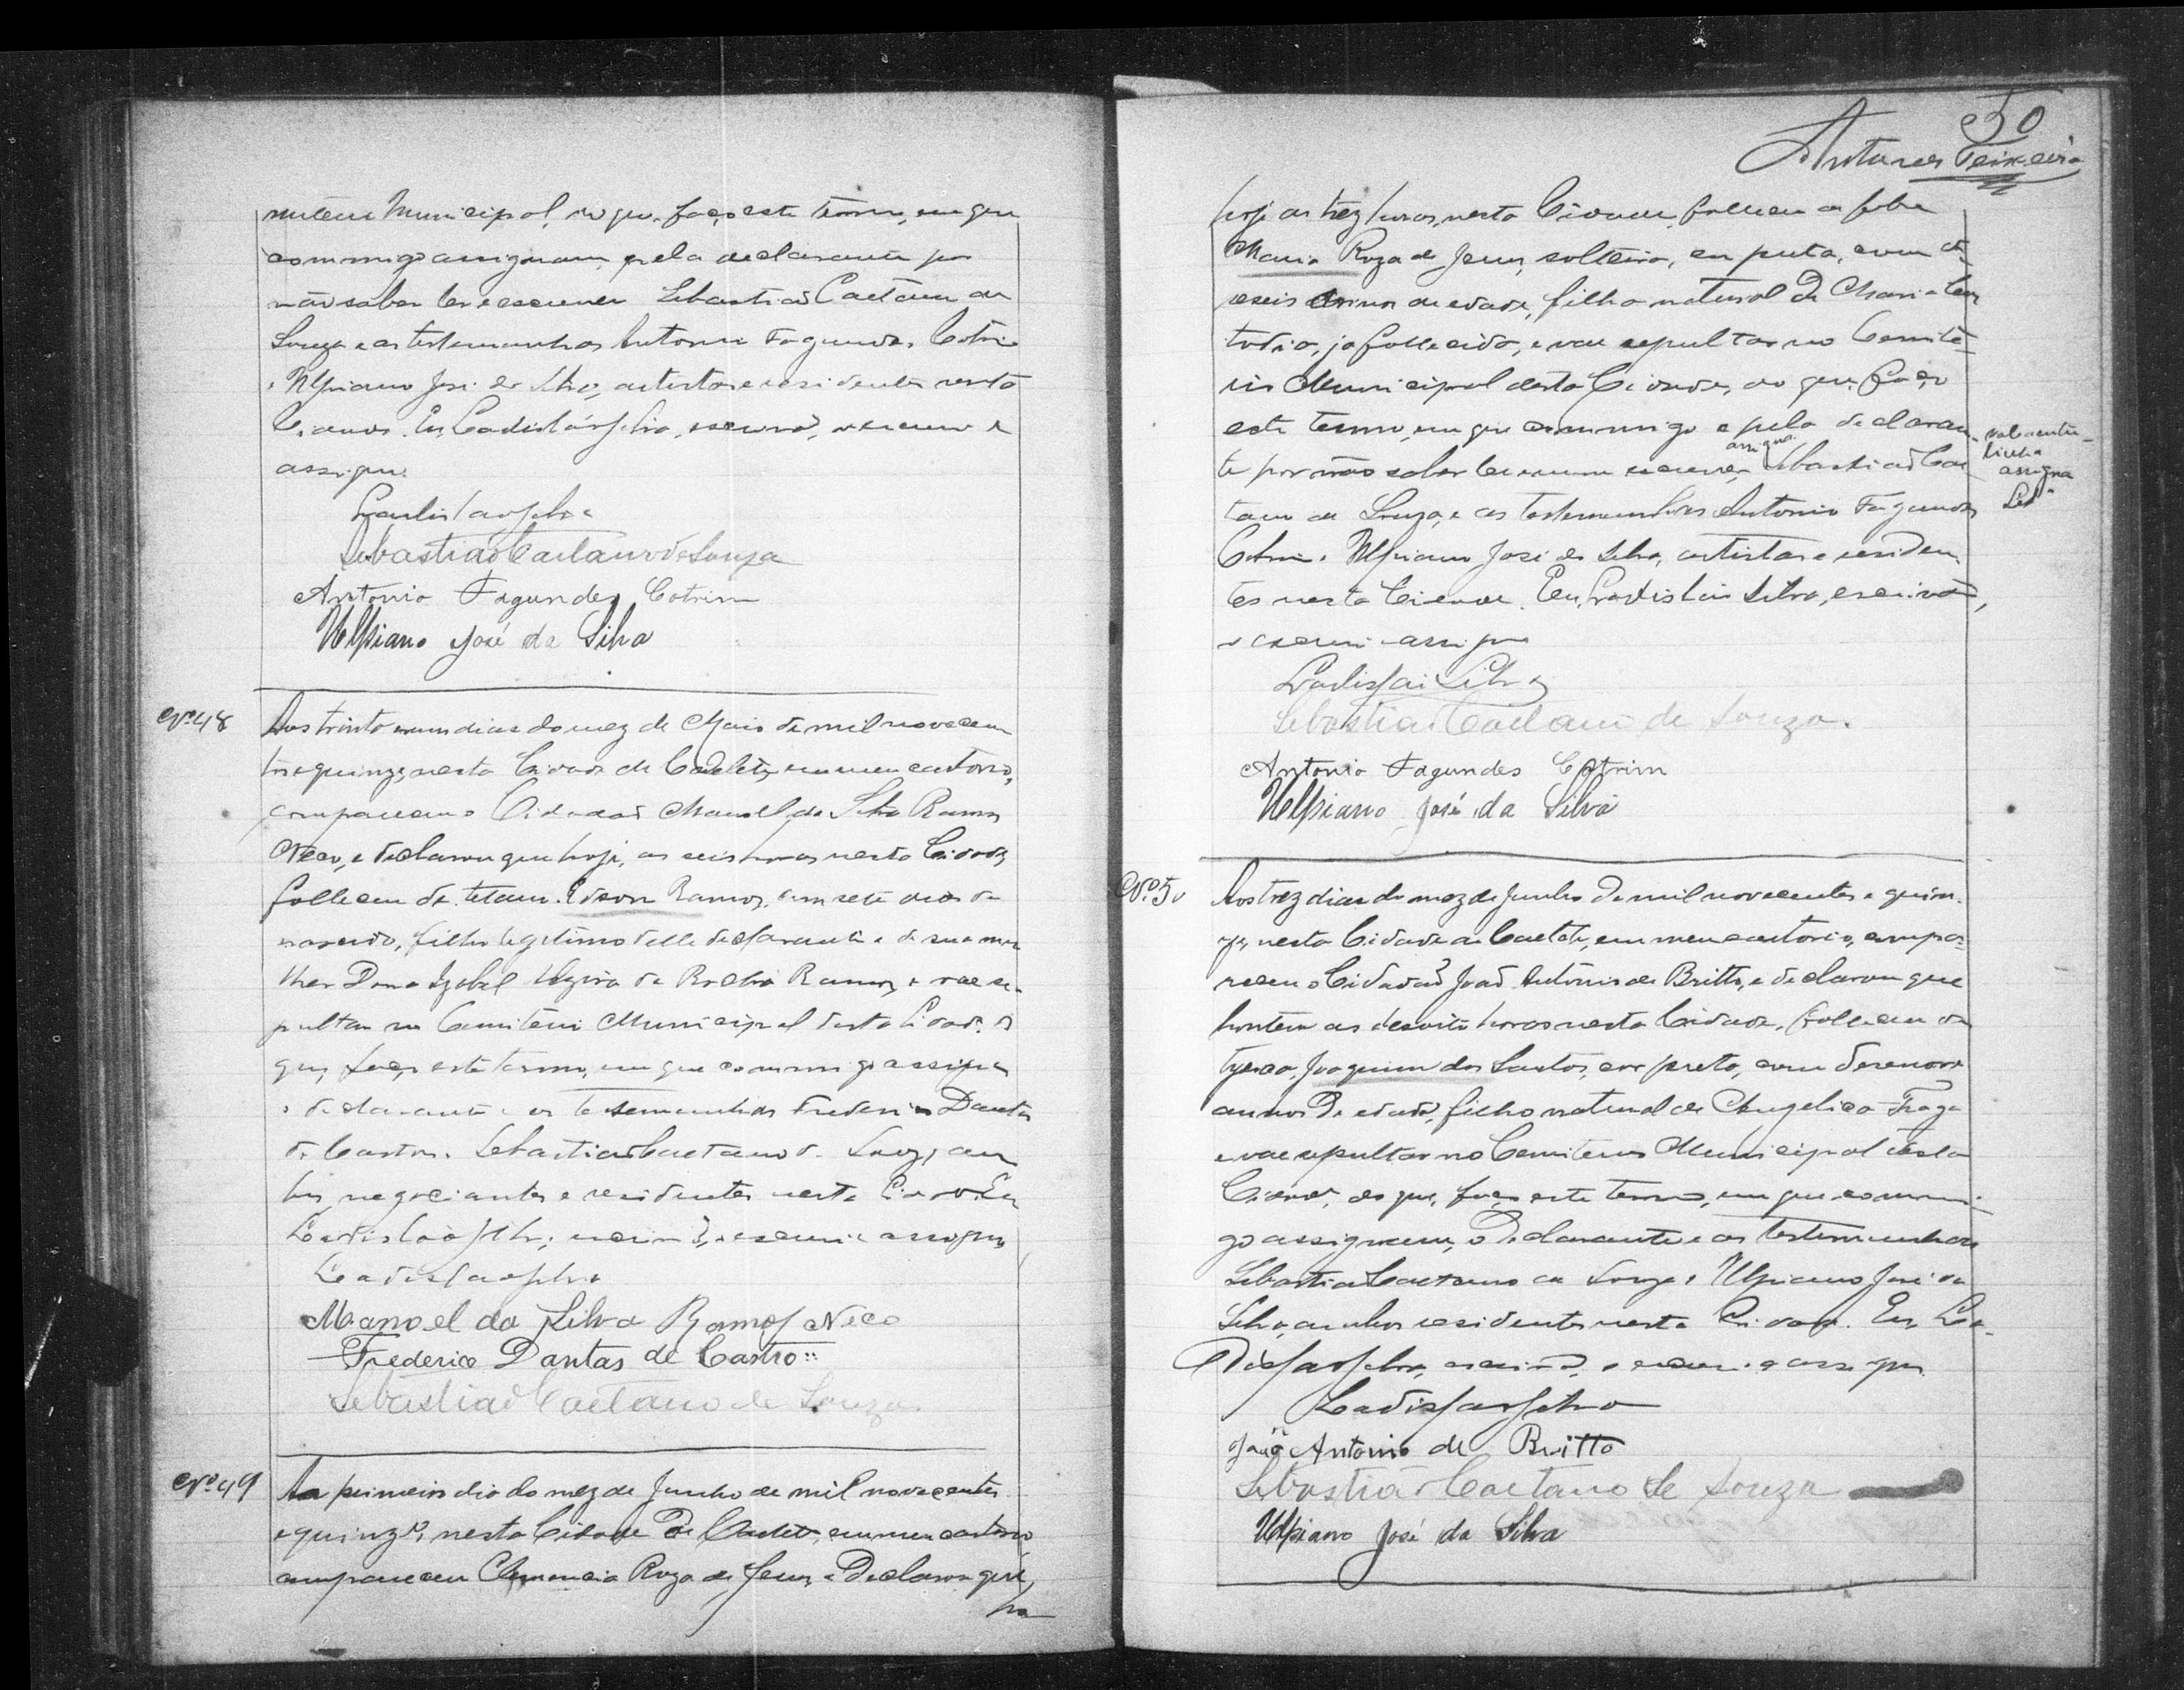 miterio Municipal, do que, faço este termo, em que
commigo assignam, pela declarante por
não saber ler e escrever Sebastião Caetano de
Souza e as testemunhas Antonio Fagundes Cotrim
e Ulpiano José da Silva, artistas e residentes nesta
Cidade. Eu, Ladisláo Silva, escrivão, o escrevi e
assigno.
Ladisláo Silva
Sebastião Caetano de Souza
Antonio Fagundes Cotrim
Ulpiano José da Silva
Nº 48
Aos trinta e um dias do mez de Maio de mil novecen
tos e quinze, nesta Cidade de Caeteté, em meu cartorio,
compareceu o Cidadão Manoel da Silva Ramos
Neco, e declarou que hoje, as seis horas nesta Cidade,
falleceu de tetano Edson Ramos, com sete dias de
nascido, filho legitimo delle declarante e de sua mu
lher Dona Izabel da Rocha Ramos, e vae se
pultar no Cemiterio Municipal desta Cidade. do
que, faço este termo, em que commigo assigna
o declarante e as testemunhas Frederico Dantas
de Castro e Sebastião Caetano de Souza, am
bos negociantes e residentes nesta Cidade. Eu
Ladisláo Silva, escrivão, o escrevi e assigno
Ladisláo Silva
Manoel da Silva Ramos Neco
Frederico Dantas de Castro
Sebastião Caetano de Souza.
Nº 49
Ao primeiro dia do mez de Junho de mil novecentos
e quinze, nesta Cidade de Caeteté, em meu cartorio
compareceu Clemencia Roza de Jesus, e declarou que,
ho
50
Antunes Teixeira
hoje as trez horas, nesta Cidade, falleceu de febre
Maria Roza de Jesus, solteira, cor preta, com de
seseis annos de edade, filha natural de Maria Cus
todia, já fallecida, e vae sepultar no Cemite
rio Municipal desta Cidade, do que, faço
este termo, em que commigo e pela declaran
te por não saber ler e nem escrever, assigna Sebastião Cae
tano de Souza, e as testemunhas Antonio Fagundes
Cotrim e Ulpiano José da Silva, artistas e residen
tes nesta Cidade. Eu, Ladisláo Silva, escrivão,
o escrevi e assigno
val a entre
linha
assigna
Ladisláo Silva
Sebastião Caetano de Souza.
Antonio Fagundes Cotrim
Ulpiano José da Silva
Nº 50
Aos trez dias do mez de Junho de mil novecentos e quin
ze, nesta Cidade de Caeteté, em meu cartorio, compa
receu o Cidadão João Antonio de Britto, e declarou que
hontem as desoito horas nesta Cidade, falleceu de
Joaquim dos Santos, cor preta, com desenove
annos de edade, filho natural de Angelica Fraga
e vae sepultar no Cemiterio Municipal desta
Cidade, do que, faço este termo, em que commi
go assignam, o declarante e as testemunhas
Sebastião Caetano de Souza e Ulpiano José da
Silva, ambos residentes nesta Cidade. Eu, La
disláo Silva, escrivão, o escrevi e assigno
Ladisláo Silva
João Antonio de Britto
Sebastião Caetano de Souza
Ulpiano José da Silva